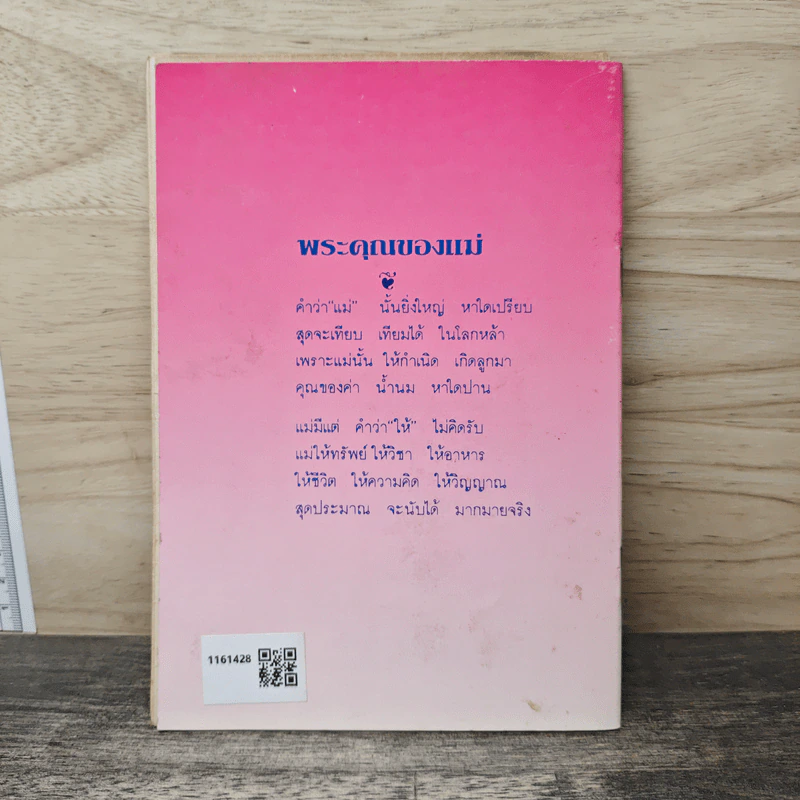 พระคุณของแม่
คำว่า"แม่" นั้นยิ่งใหญ่ หาใดเปรียบ
สุดจะเทียบ เทียมได้ ในโลกหล้า
เพราะแม่นั้น ให้กำเนิด เกิดลูกมา
คุณของค่า น้ำนม หาใดปาน
แม่มีแต่ คำว่า"ให้" ไม่คิดรับ
แม่ให้ทรัพย์ ให้วิชา ให้อาหาร
ให้ชีวิต ให้ความคิด ให้วิญญาณ
สุดประมาณ จะนับได้ มากมายจริง
1161428